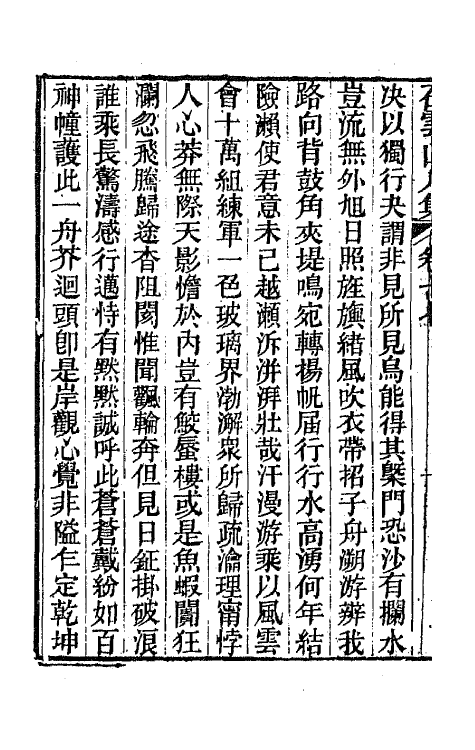 石雲山人集 卷
決以獨行夬謂非見所見烏能得其槩門恐沙有攔水
豈流無外旭日照旌旟緒風吹衣帶招子舟溯游辨我
路向背鼓角夾堤鳴宛轉揚帆届行行水高湧何年結
險瀨使君意未已越瀬泝洴湃壯哉汗漫游乘以風雲
會十萬組練軍一色玻璃界渤澥衆所歸疏瀹理甯悖
人心莽無際天影憺於內豈有鮫蜃樓或是魚蝦闠狂
瀾忽飛騰歸途杳阻閡惟聞飄輪奔但見日鉦掛破浪
誰乘長驚濤感行邁恃有黙黙誠呼此蒼蒼戴紛如百
神幢護此一舟芥迴頭卽是岸觀心覺非隘仨定乾坤